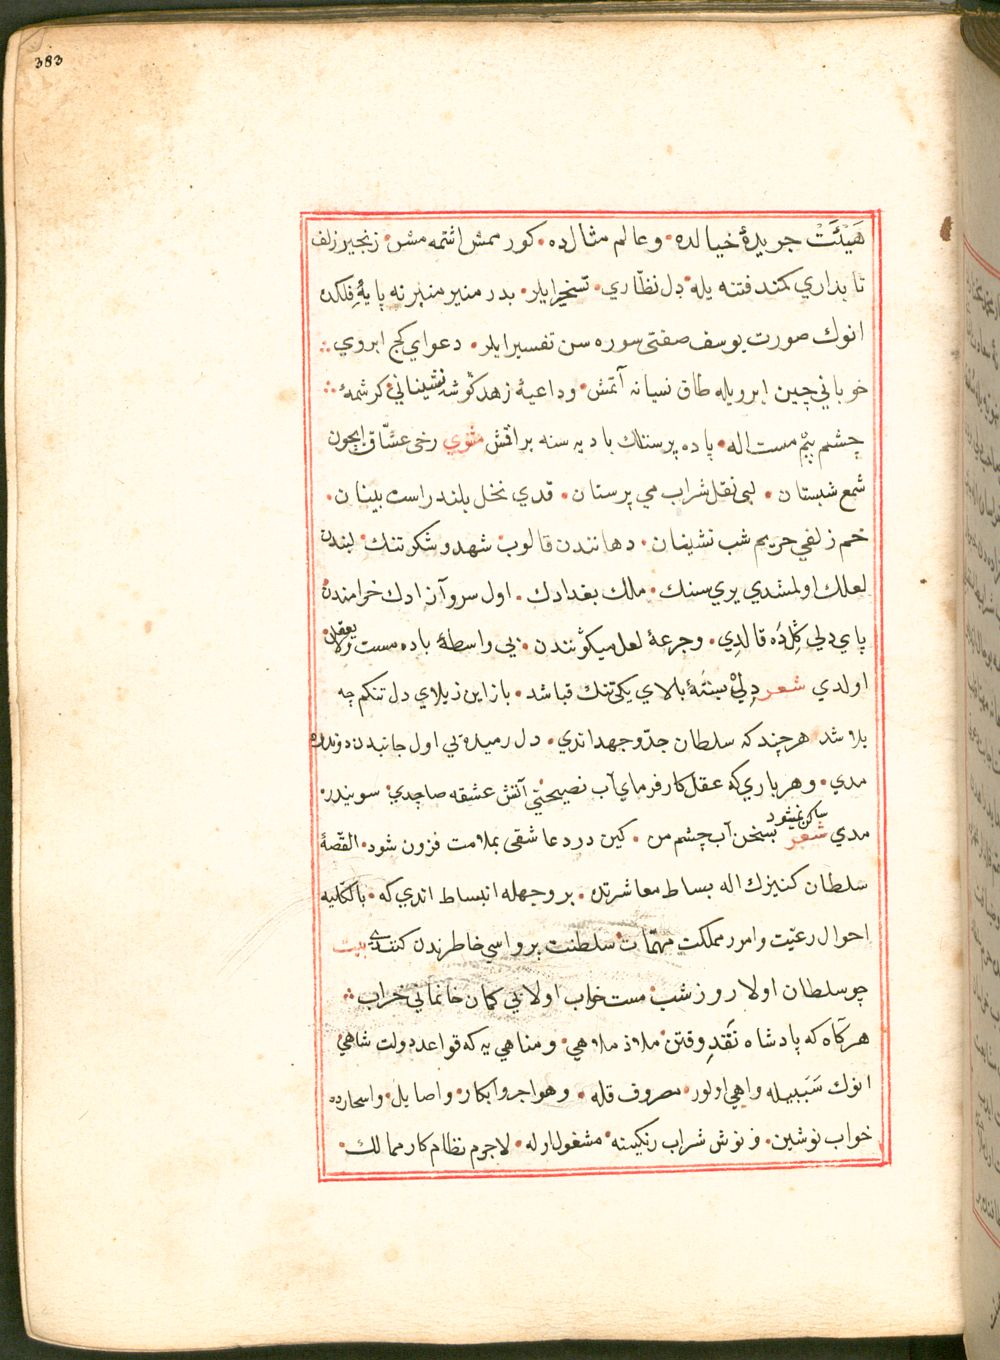 383
هَيْئَتْ جريدۀ خيالده · وعالم مثالده · كورممش اشتمه مشن · زنجير زلف
تابداري كمند فتنه يله · دل نظّاري · تسخير ايلر · بدر منير منبر نه پايۀ فلكدن
انوك صورت يوسف صفتى سوره سن تفسير ايلر · دعواي كج ابروي
خوباني چين ابرويله طاق نسيانه آتمش · وداعيۀ زهد كوشه نشيناني كرشمۀ
چشم مست اله · باده پرستلك باديه سنه براقمش مثنوي رخى عشّاق ايچون
شمع شبستان · لبى نقل شراب مي پرستان · قدي نخل بلند راست بينان ·
خم زلفي حريم شب نشينان · دهانندن قالوب شهد و شكر تنك · لبندن
لعلك اولمشدي يري سنك · ملك بغدادك · اول سرو آزادك خرامندن
پاي دلي كِلده قالدي · وجرعۀ لعل ميكونندن · بي واسطۀ باده مست ولايعقل
اولدي شعر دلي بلاي يكى تنك قبا شد · باز اين ز بلاي دل تنكم چه
بلا شد هرچند كه سلطان جدّ وجهد اتدي · دل رميده يي اول جانبدن دوندره
مدي · وهر باري كه عقل كارفرماي آب نصيحتي آتش عشقه صاچدي · سويندر
مدي شعر ساكن نميشود بسخن آب چشم من · كين درد عاشقى بملامت فزون شود · القصّۀ
سلطان كنيزك اله بساط معاشرتده · بر وجهله انبساط اتدي كه · بالكليه
احوال رعيّت وامور مملكت مهمّات سلطنت پرواسي خاطرندن كتدي بيت
چو سلطان اولا روز شب مست خواب اولا بي كمان خانماني خراب
هر كاه كه پادشاه نقد وقتن · ملاذ ملاهي · ومناهي يه كه قواعد دولت شاهي
انوك سَبَبيله واهي اولور · مصروف قله · وهواجر وابكار · واصايل · واسحارده
خواب نوشين · و نوش شراب رنكينه · مشغول اوله · لاجرم نظام كار ممالك ·